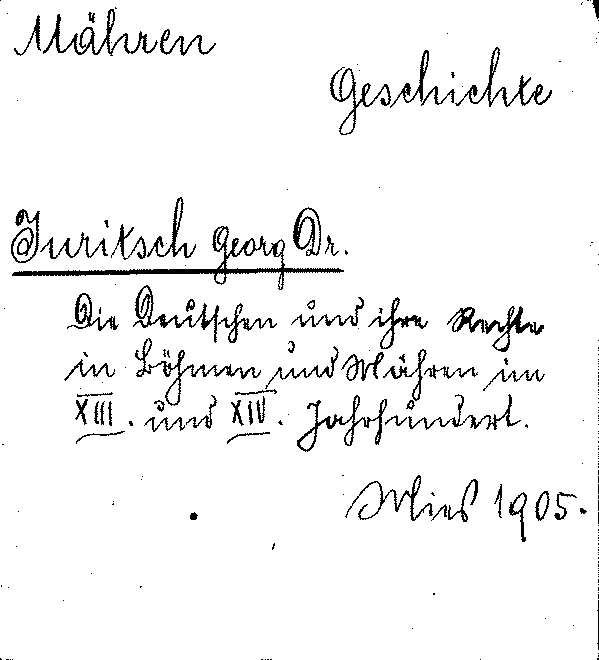 Mähren
Geschichte
Juritsch Georg Dr.
Die Deutschen und ihre Rechte
in Böhmen und Mähren im
XIII. und XIV. Jahrhundert.
Mies 1905.